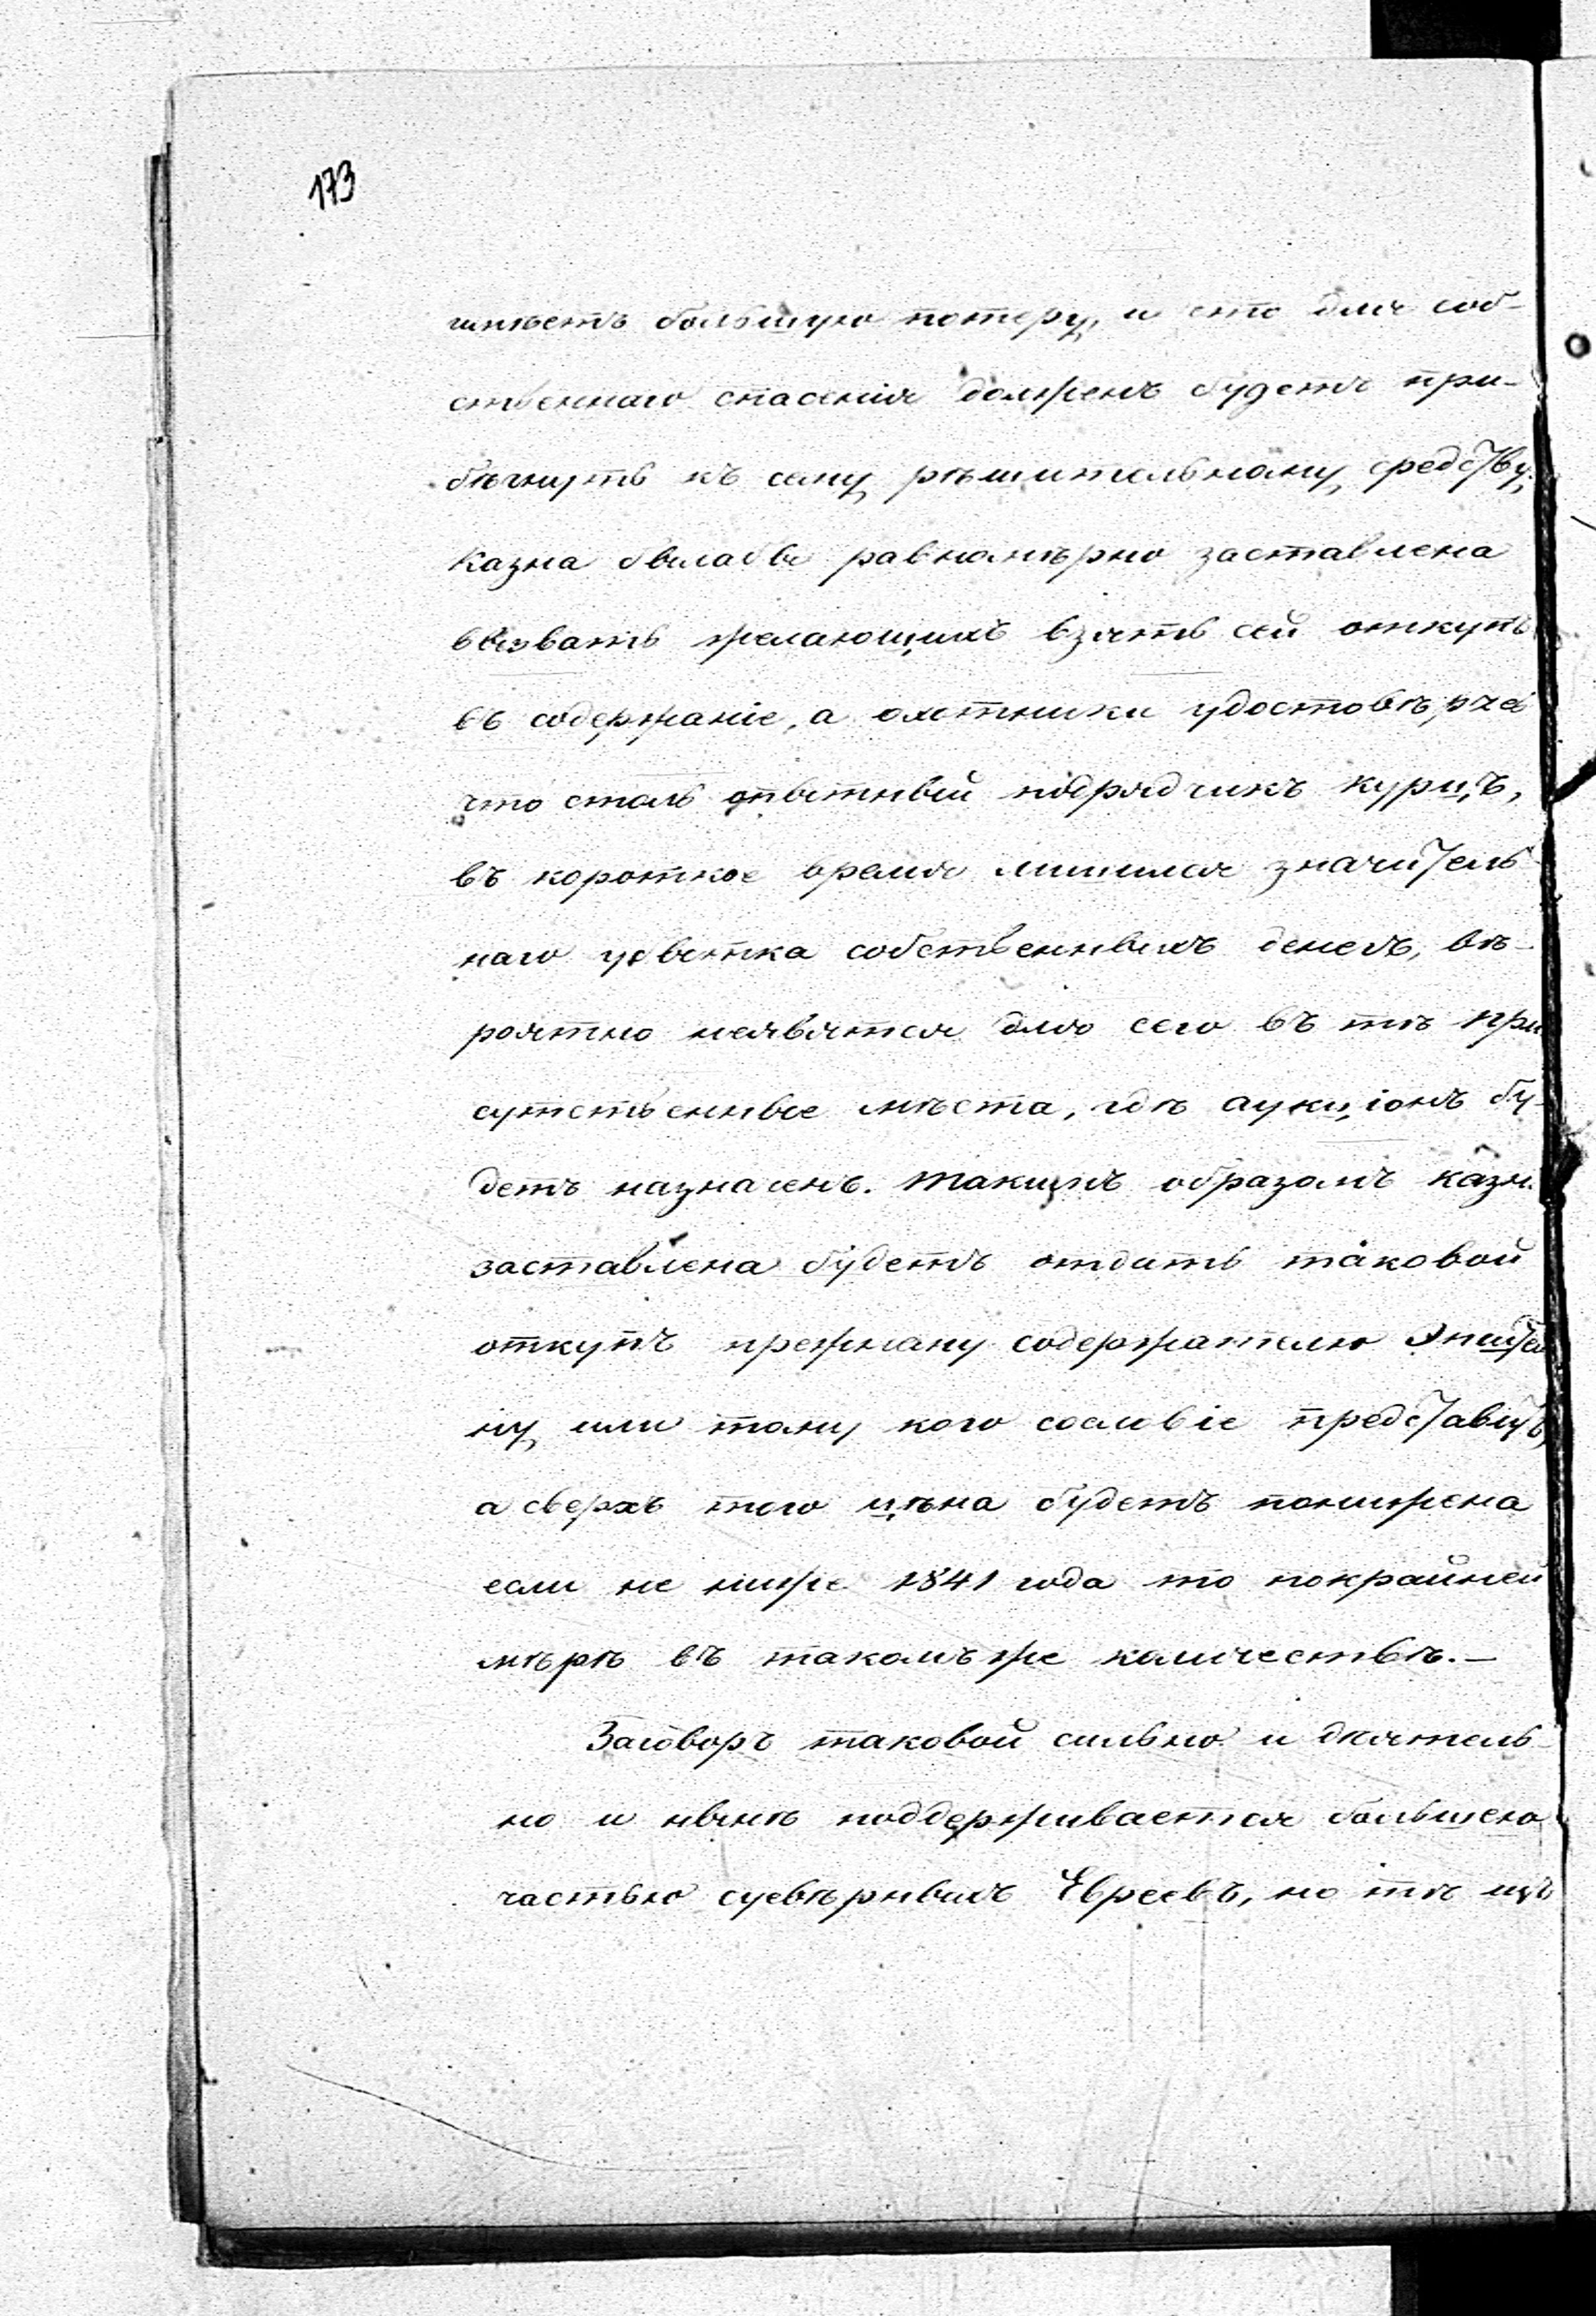 173
имѣетъ большую потерю, и что для соб-
ственнаго спасенія долженъ будетъ при-
бѣгнуть къ сему рѣшительному средству.
Казна былабы равномѣрно заставлена
вызвать желающихъ взять сей откупъ
въ содержаніе, а охотники удостовѣряся
что столь опытный подрядчикъ Курицъ,
въ короткое время лишился значитель
наго убытка собственныхъ денегъ, вѣ-
роятно неявятся для сего въ тѣ при
сутственные мѣста, гдѣ аукціонъ бу-
детъ назначенъ. Такимъ образомъ казна
заставлена будетъ отдать таковой
откупъ прежнему содержателю
ну или тому кого сословіе представитъ,
а сверхъ того цѣна будетъ понижена
если не ниже 1841 года то покрайней
мѣрѣ въ такомъ же количествѣ.—
Заговоръ таковой сильно и дѣятель
но и нынѣ поддерживается большею
частью суевѣрныхъ Евреевъ, но тѣ изъ